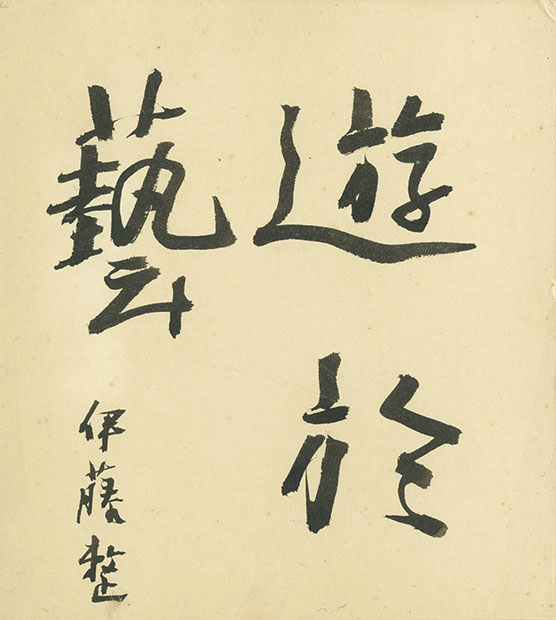 遊於
藝
伊藤整